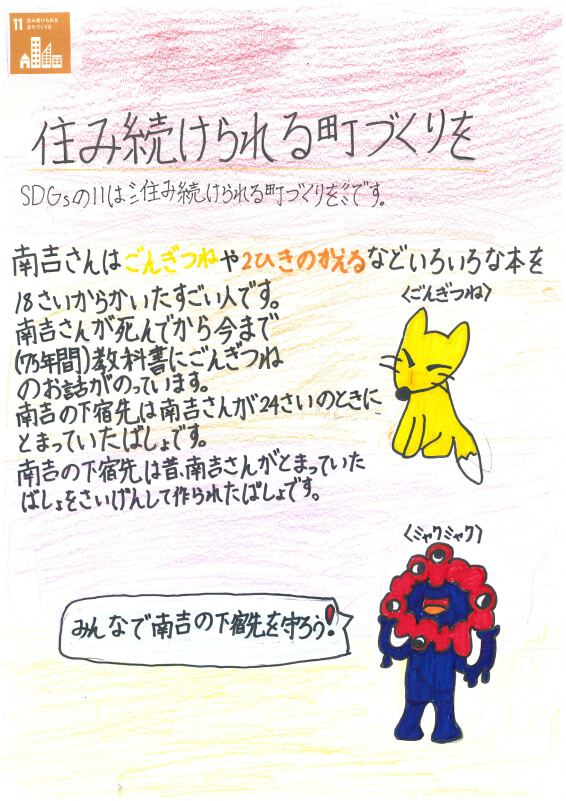 11 住み続けられる
まちづくりを
住み続けられる町づくりを
SDGsの11は〝住み続けられる町づくりを〟です。
南吉さんはごんぎつねや2ひきのかえるなどいろいろな本を
18さいからかいたすごい人です。
南吉さんが死んでから今まで
(75年間)教科書にごんぎつね
のお話がのっています。
南吉の下宿先は南吉さんが24さいのときに
とまっていたばしょです。
南吉の下宿先は昔、南吉さんがとまっていた
ばしょをさいげんして作られたばしょです。
〈ごんぎつね〉
〈ミャクミャク〉
みんなで南吉の下宿先を守ろう!